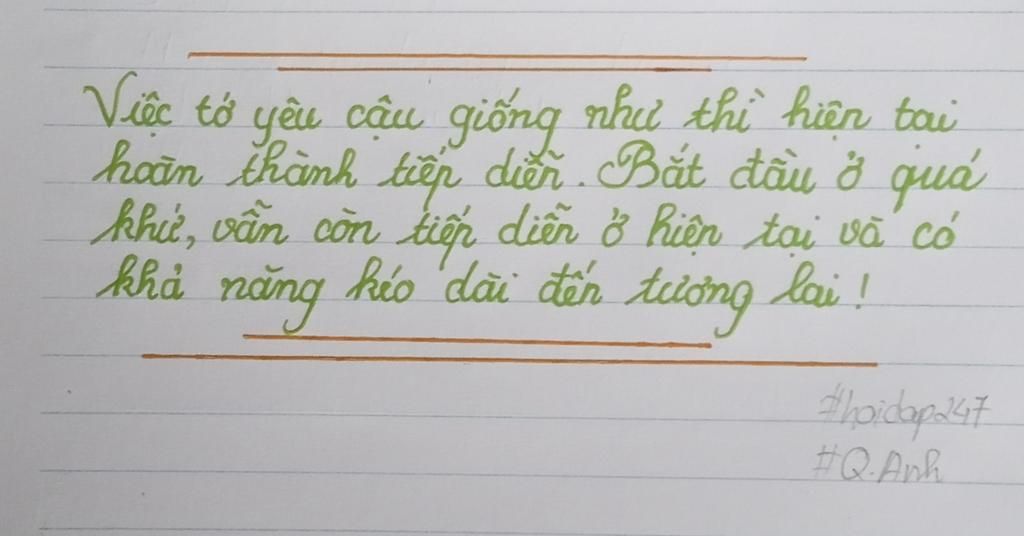 Việc tớ yêu cậu giống như thì hiện tại
hoàn thành tiếp diễn. Bắt đầu ở quá
khứ, vẫn còn tiếp diễn ở hiện tại và có
khả năng kéo dài đến tương lai!
#hoidap247
#Q.Anh